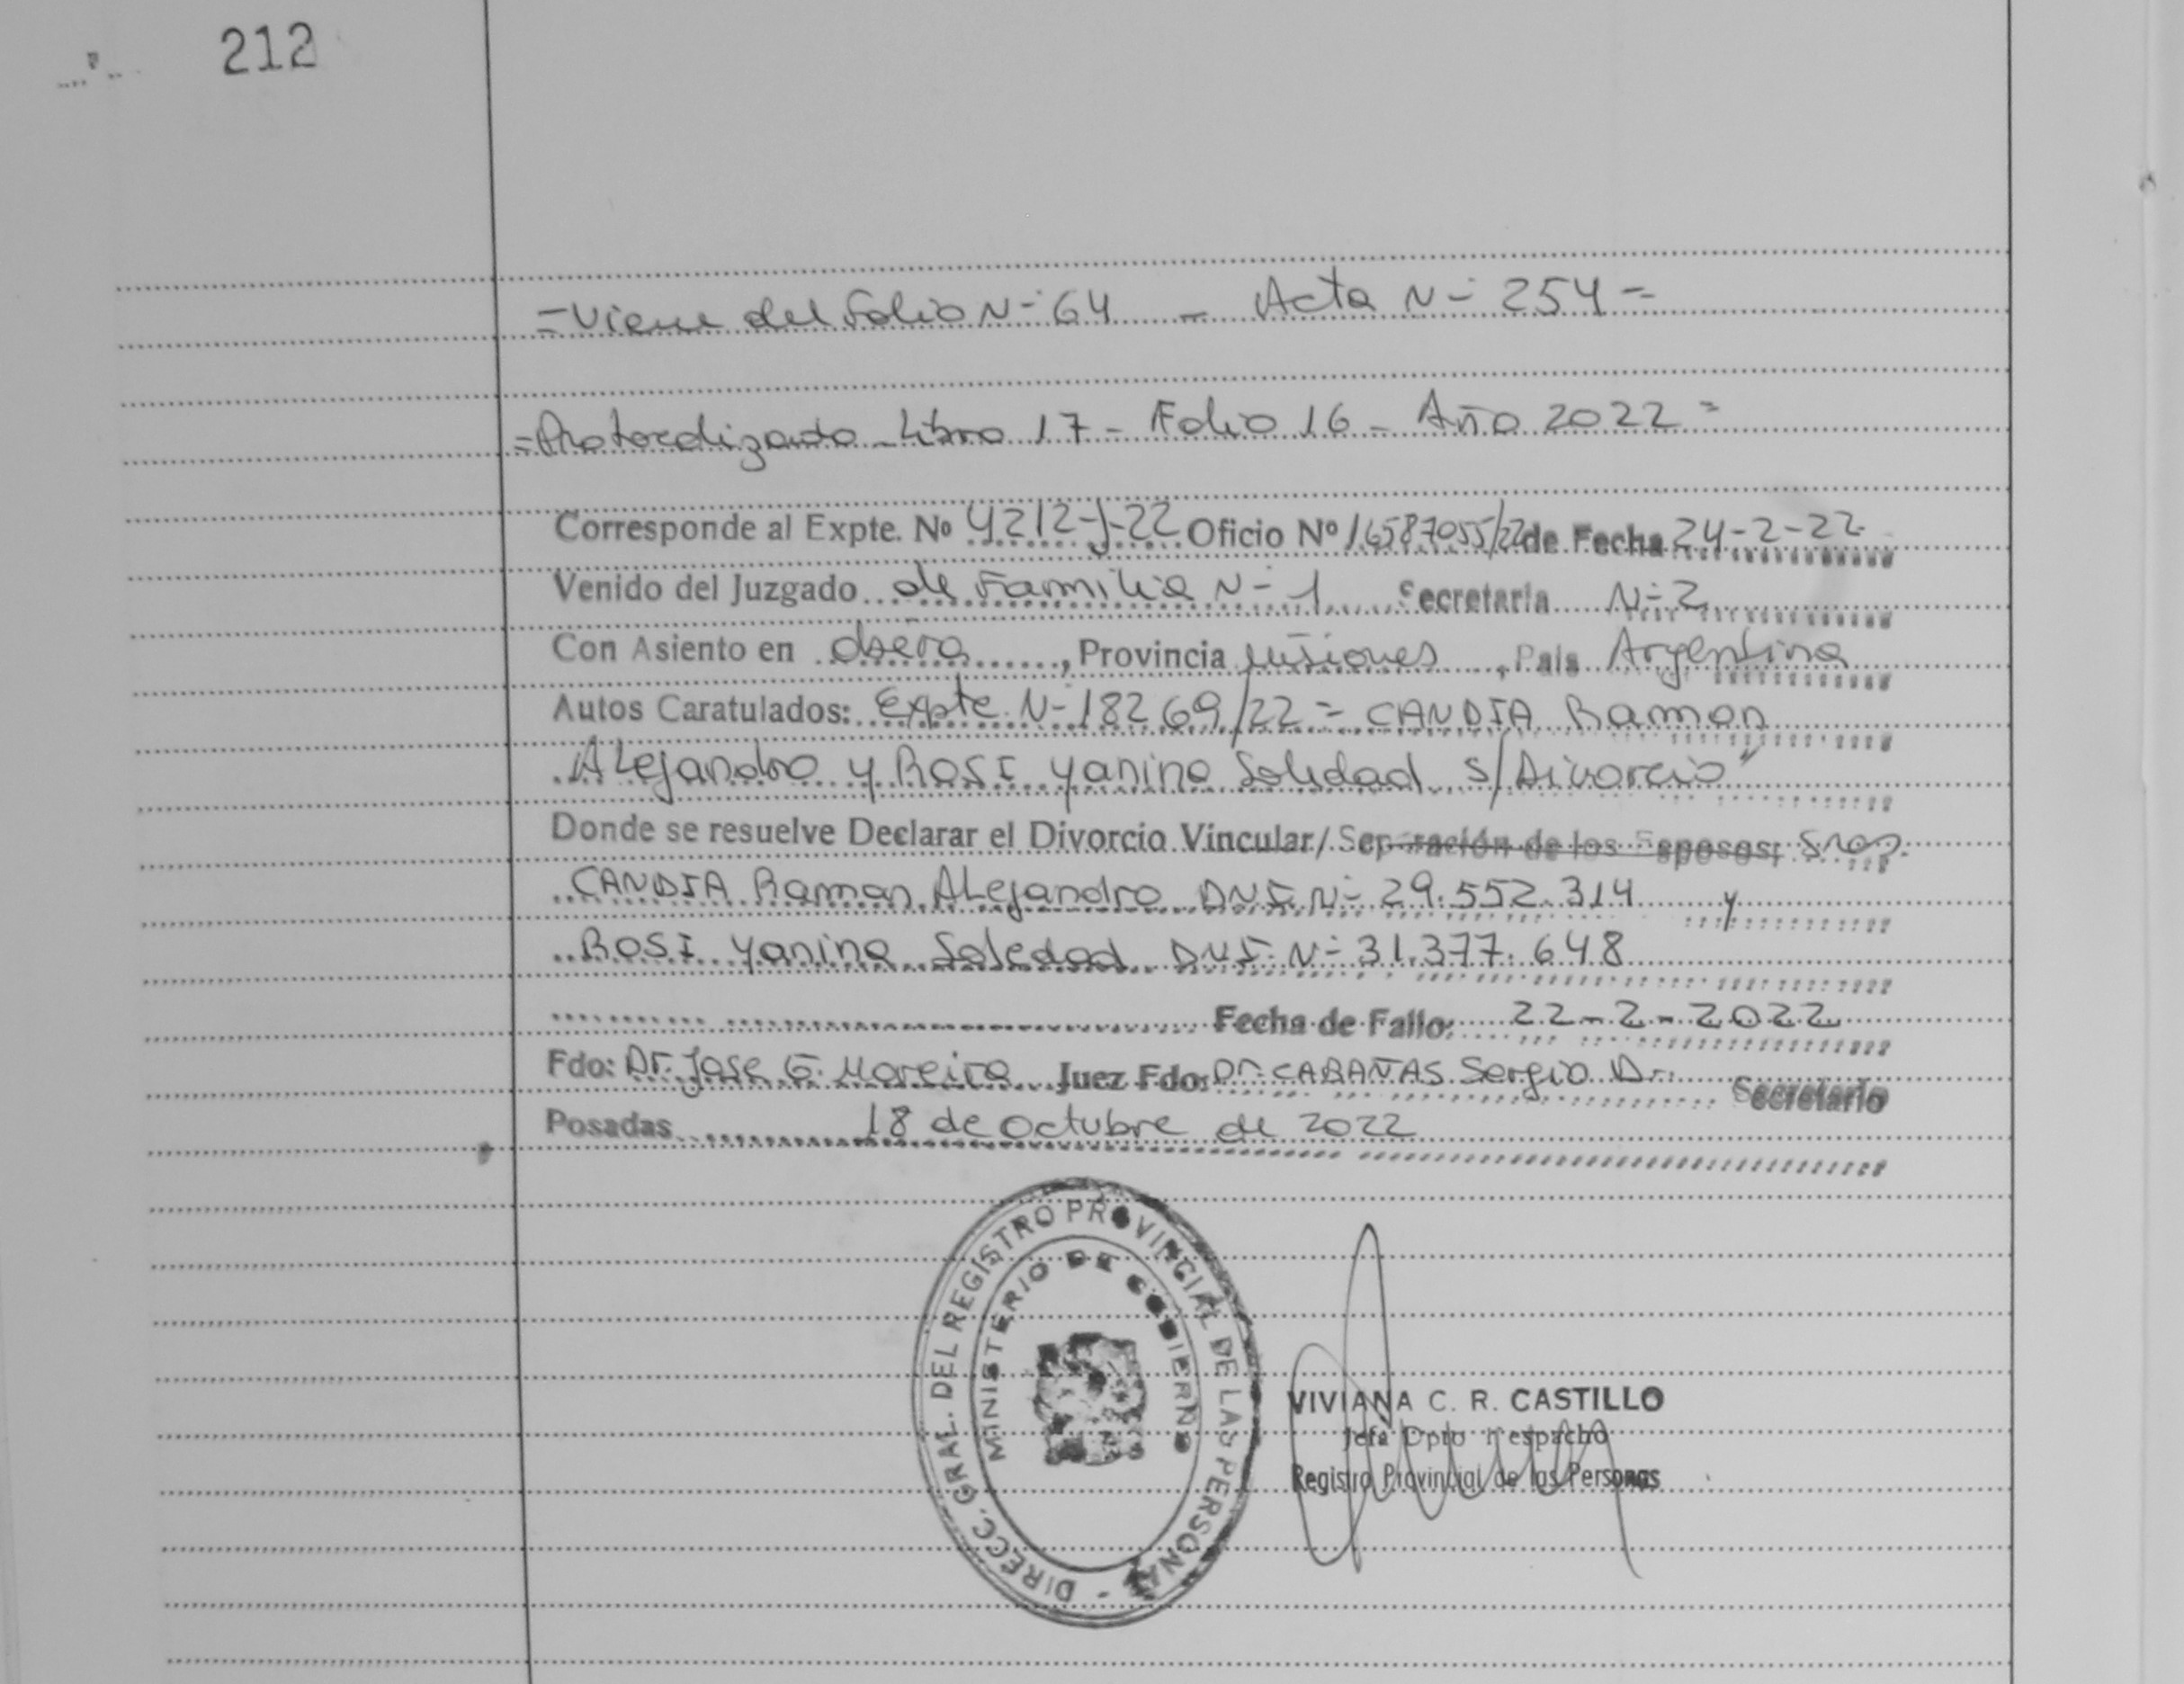 212
=Viene del Folio N- 64 - Acta N- 254=
=Protocolizado Libro 17 - Folio 16 - Año 2022=
Corresponde al Expte. Nº 4212-J-22 Oficio Nº 16587055/22 de Fecha 24-2-22
Venido del Juzgado de Familia N- 1 Secretaria N- 2
Con Asiento en Oberá, Provincia Misiones, Pais Argentina
Autos Caratulados: Expte. N- 18269/22 = CANDIA Ramon
Alejandro y ROSI Yanina Soledad s/Divorcio"
Donde se resuelve Declarar el Divorcio Vincular/ Separación de los Esposos; Sres.
CANDIA Ramon Alejandro DNI. N- 29.552.314 y
ROSI Yanina Soledad DNI. N- 31.377.648
Fecha de Fallo: 22-2-2022
Fdo: Dr. Jose G. Moreira Juez Fdo: Dr. CABAÑAS Sergio D. Secretario
Posadas 18 de octubre de 2022
DIRECC. GRAL. DEL REGISTRO PROVINCIAL DE LAS PERSONAS -
MINISTERIO DE GOBIERNO
VIVIANA C. R. CASTILLO
Jefa Dpto Despacho
Registro Provincial de las Personas